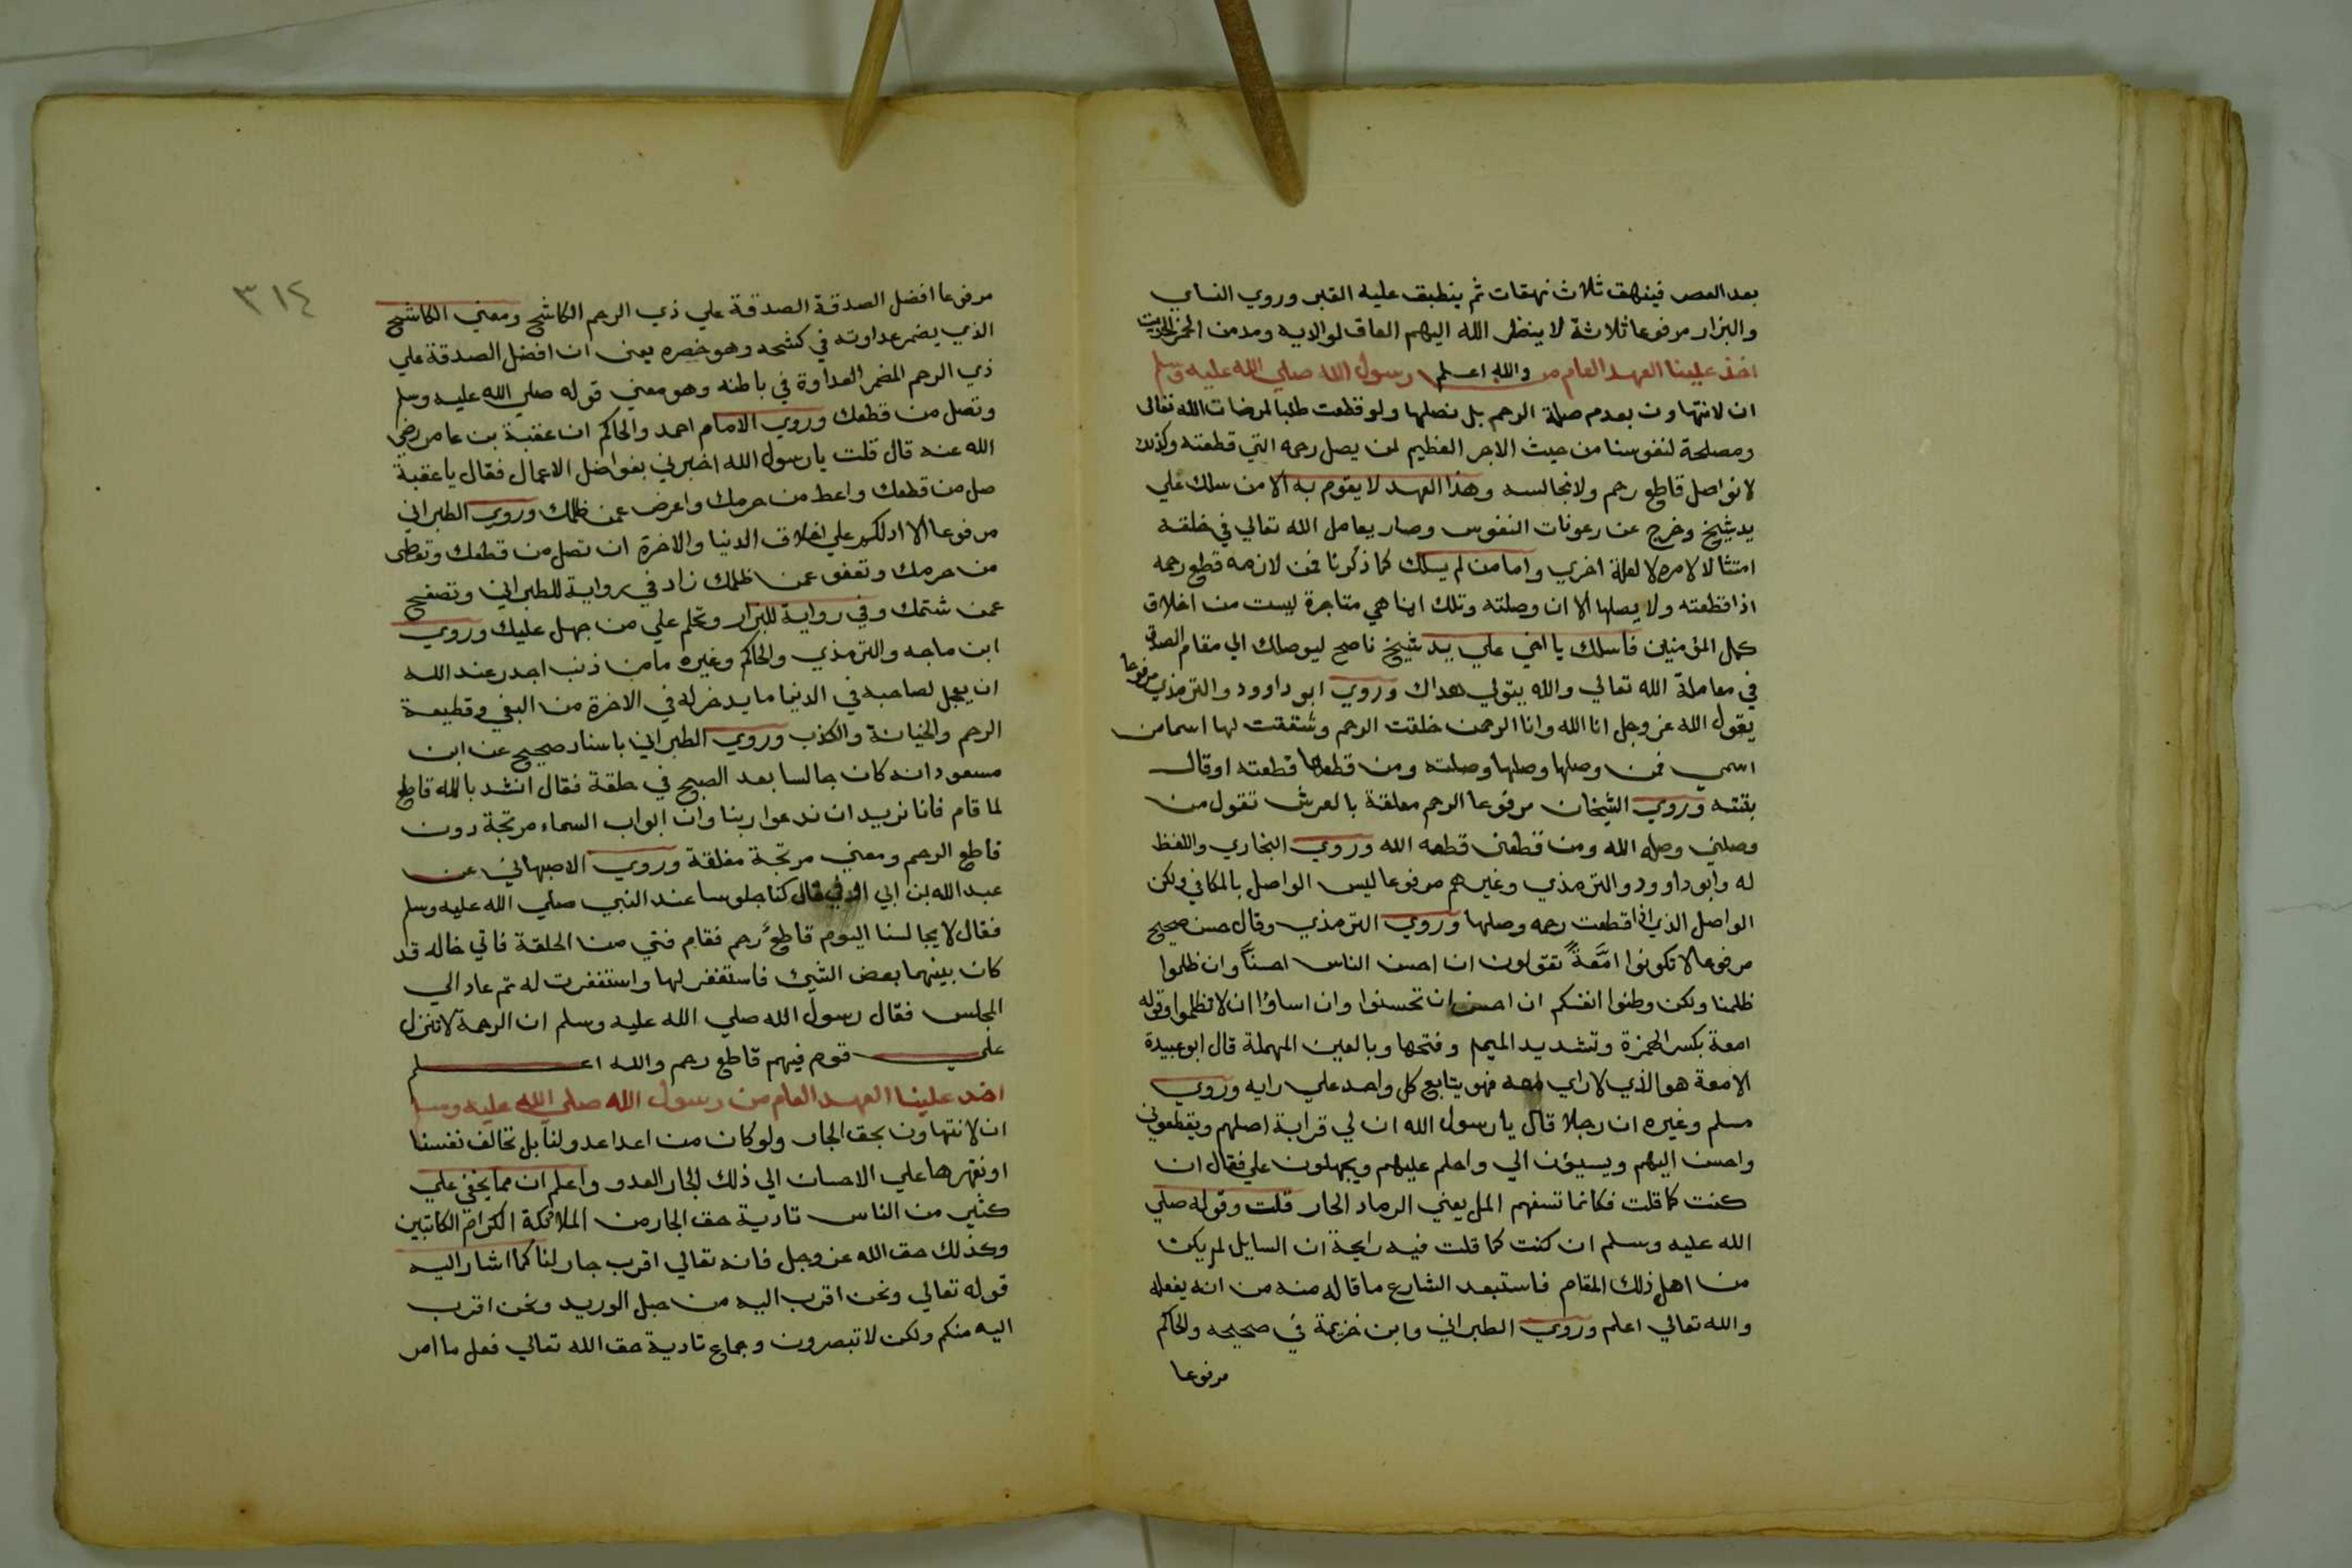 بعد العصر فينهق ثلاث نهقات ثم ينطبق عليه القبر وروي النساي
والبزار مرفوعا ثلاثة لا ينظر الله اليهم العاق لوالديه ومدمن الخمر الحديث
والله اعلم اخذ علينا العهد العام من رسول الله صلي الله عليه وسلم
ان لا نتهاون بعدم صلة الرحم بل نصلها ولو قطعت طلبا لمرضات الله تعالى
ومصلحة لنفوسنا من حيث الاجر العظيم لمن يصل رحمه التي قطعته وكذلك
لا نواصل قاطع رحم ولا نجالسه وهذا العهد لا يقوم به الا من سلك علي
يد شيخ وخرج عن رعونات النفوس وصار يعامل الله تعالي في خلقه
امتثالا لامره لا لعلة اخري واما من لم يسلك كما ذكرنا فمن لازمه قطع رحمه
اذا قطعته ولا يصلها الا ان وصلته وتلك انما هي متاجرة ليست من اخلاق
كمل المؤمنين فاسلك يا اخي علي يد شيخ ناصح ليوصلك الي مقام الصدق
في معاملة الله تعالي والله يتولي هداك وروي ابو داوود والترمذي مرفوعا
يقول الله عز وجل انا الله وانا الرحمن خلقت الرحم وشققت لها اسما من
اسمي فمن وصلها وصلها وصلته ومن قطعها قطعته او قال
بتته وروي الشيخان مرفوعا الرحم معلقة بالعرش تقول من
وصلني وصله الله ومن قطعني قطعه الله وروي البخاري واللفظ
له وابو داوود والترمذي وغيرهم مرفوعا ليس الواصل بالمكافي ولكن
الواصل الذي اذا قطعت رحمه وصلها وروي الترمذي وقال حسن صحيح
مرفوعا لا تكونوا امَّعةً تقولون ان احسن الناس احسنَّا وان ظلموا
ظلمنا ولكن وطنوا انفسكم ان احسن ان تحسنوا وان اساؤا ان لا تظلموا وقوله
امعة بكسر الهمزة وتشديد الميم وفتحها وبالعين المهملة قال ابو عبيدة
الامعة هو الذي لا راي معه فهو يتابع كل واحد علي رايه وروي
مسلم وغيره ان رجلا قال يا رسول الله ان لي قرابة اصلهم ويقطعوني
واحسن اليهم ويسيؤن الي واحلم عليهم ويجهلون علي فقال ان
كنت كما قلت فكانما تسفهم المل يعني الرماد الحار قلت وقوله صلي
الله عليه وسلم ان كنت كما قلت فيه رايحة ان السايل لم يكن
من اهل ذلك المقام فاستبعد الشارع ما قاله منه من انه يفعله
والله تعالي اعلم وروي الطبراني وابن خزيمة في صحيحه والحاكم
مرفوعا
٣١٤
مرفوعا افضل الصدقة الصدقة علي ذي الرحم الكاشح ومعني الكاشح
الذي يضمر عداوته في كشحه وهو خصره يعني ان افضل الصدقة علي
ذي الرحم المضمر العداوة في باطنه وهو معني قوله صلي الله عليه وسلم
وتصل من قطعك وروي الامام احمد والحاكم ان عقبة بن عامر رضي
الله عنه قال قلت يا رسول الله اخبرني بفواضل الاعمال فقال يا عقبة
صل من قطعك واعط من حرمك واعرض عمن ظلمك وروي الطبراني
مرفوعا الا ادلكم علي اخلاق الدنيا والاخرة ان تصل من قطعك وتعطى
من حرمك وتعفو عمن ظلمك زاد في رواية للطبراني وتصفح
عمن شتمك وفي رواية للبزار وتحلم علي من جهل عليك وروي
ابن ماجه والترمذي والحاكم وغيره ما من ذنب اجدر عند الله
ان يعجل لصاحبه في الدنيا ما يدخر له في الاخرة من البغي وقطيعة
الرحم والخيانة والكذب وروي الطبراني باسناد صحيح عن ابن
مسعود انه كان جالسا بعد الصبح في حلقة فقال انشد بالله قاطع
لما قام فانا نريد ان ندعوا ربنا وان ابواب السماء مرتجة دون
قاطع الرحم ومعني مرتجة مغلقة وروي الاصبهاني عن
عبد الله بن ابي اوفي قال كنا جلوسا عند النبي صلي الله عليه وسلم
فقال لا يجالسنا اليوم قاطعُ رحم فقام فتي من الحلقة فاتي خاله قد
كان بينهما بعض الشيئ فاستغفر لها واستغفرت له ثم عاد الي
المجلس فقال رسول الله صلي الله عليه وسلم ان الرحمة لا تنزل
علي قوم فيهم قاطع رحم والله اعلم
اخذ علينا العهد العام من رسول الله صلي الله عليه وسلم
ان لا نتهاون بحق الجار ولو كان من اعدا عدو لنا بل نخالف نفسنا
او نقهرها علي الاحسان الي ذلك الجار العدو واعلم ان مما يخفي علي
كثير من الناس تادية حق الجار من الملائكة الكرام الكاتبين
وكذلك حق الله عز وجل فانه تعالي اقرب جار لنا كما اشار اليه
قوله تعالي ونحن اقرب اليه من حبل الوريد ونحن اقرب
اليه منكم ولكن لا تبصرون وجماع تادية حق الله تعالي فعل ما امر